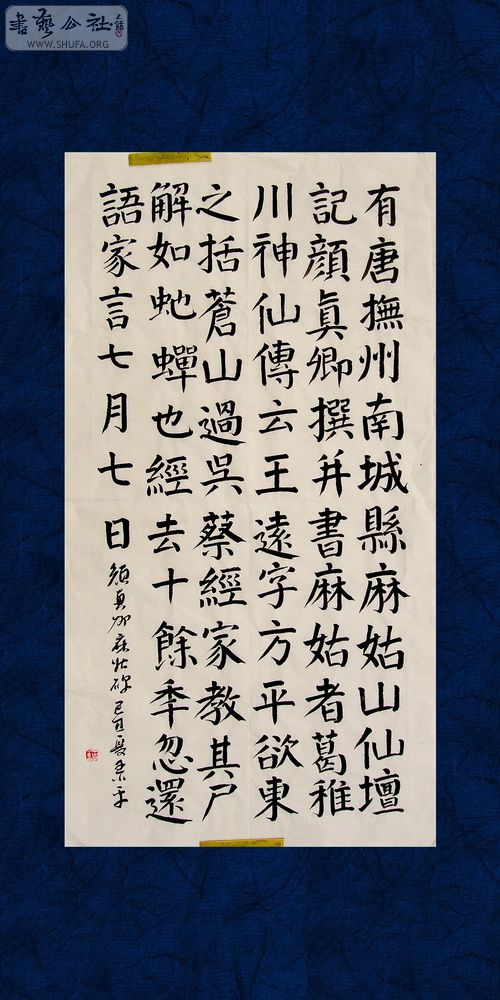 書藝公社
WWW.SHUFA.ORG
有唐撫州南城縣麻姑山仙壇
記顔真卿撰并書麻姑者葛稚
川神仙傳云王遠字方平欲東
之括蒼山過吳蔡經家教其尸
解如虵蟬也經去十餘年忽還
語家言七月七日
顔真卿麻姑碑己丑夏秉平